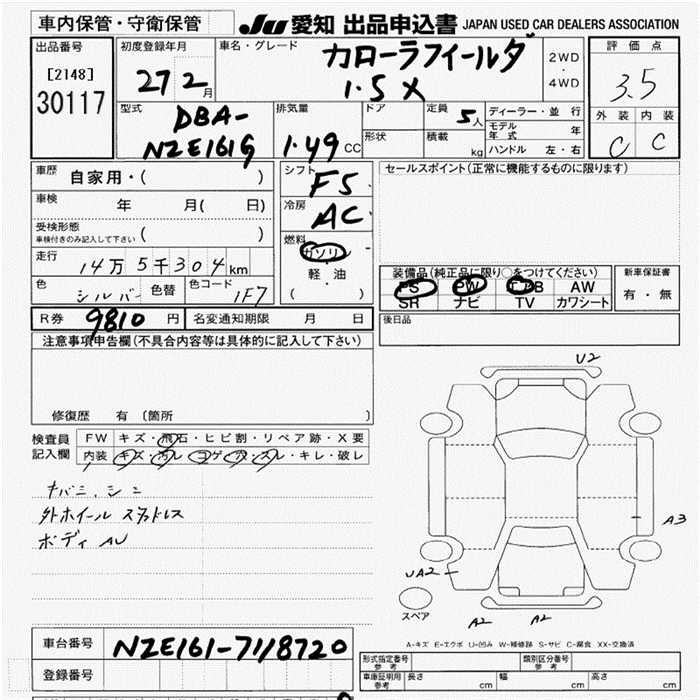 車内保管・守衛保管 JU 愛知 出品申込書 JAPAN USED CAR DEALERS ASSOCIATION
出品番号 初度登録年月 車名・グレード 評価点
[2148] 30117 27 2月 カローラフィールダ 2WD・4WD 3.5
1.5X
型式 排気量 ドア 定員 5人 ディーラー・並行 外装 内装
DBA- モデル年式 年 C C
NZE161G 1.49CC 形状 積載 kg ハンドル 左・右
車歴 自家用・( ) シフト F5 セールスポイント(正常に機能するものに限ります)
車検 年 月( 日) 冷房 AC
受検形態 車検付きのみ記入して下さい ( ) 燃料 ガソリン
走行 14万5千304km ・軽油 装備品(純正品に限り○をつけてください) 新車保証書
色 シルバー 色替 色コード 1F7 ( ) PS PW エアB AW 有・無
SR ナビ TV カワシート
R券 9810円 名変通知期限 月 日 後日品
注意事項申告欄(不具合内容等は具体的に記入して下さい)
U2
修復歴 有 〔箇所 〕
検査員記入欄 FW キズ・飛石・ヒビ割・リペア跡・X要
内装 キズ・汚レ・コゲ・穴・スレ・キレ・破レ
外ホイール スタッドレス A3
ボディ AU
UA2
スペア A2 A2
A-キズ E-エクボ U-凹み W-補修跡 S-サビ C-腐食 XX-交換済
車台番号 NZE161-7118720 形式指定番号 参考 類別区分番号 参考
登録番号 車庫証明用 参考 長さ cm 幅 cm 高さ cm